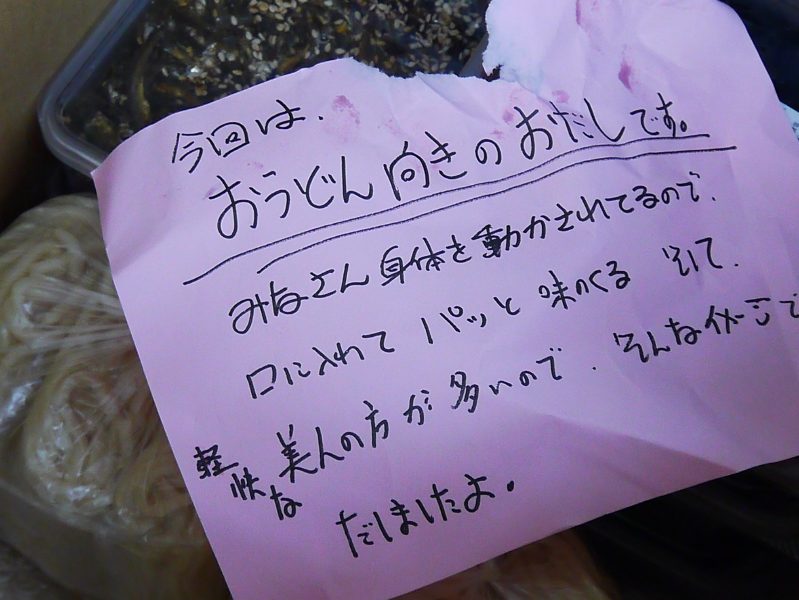 今回は、
おうどん向きのおだしです。
みなさん身体を動かされてるので、
口に入れてパッと味のくる そして、
軽快な美人の方が多いので、そんなイメージで
だしましたよ。